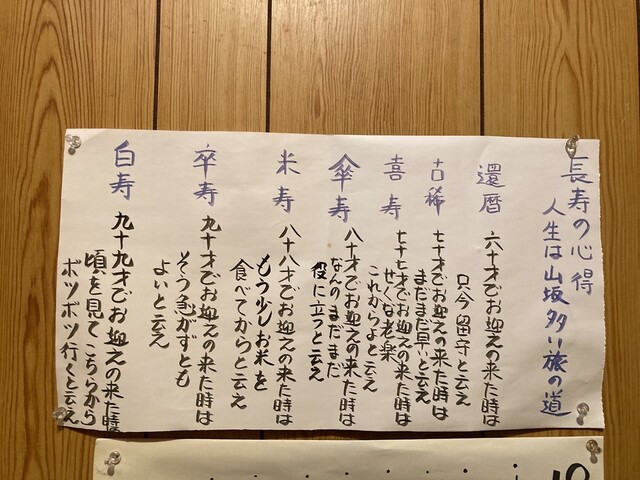 長寿の心得
人生は山坂多い旅の道
還暦
六十才でお迎えの来た時は
只今留守と云え
古稀
七十才でお迎えの来た時は
まだまだ早いと云え
喜寿
七十七才でお迎えの来た時は
せくな老楽
これからよと云え
傘寿
八十才でお迎えの来た時は
なんのまだまだ
役に立つと云え
米寿
八十八才でお迎えの来た時は
もう少しお米を
食べてからと云え
卒寿
九十才でお迎えの来た時は
そう急がずとも
よいと云え
白寿
九十九才でお迎えの来た時
頃を見てこちらから
ボツボツ行くと云え